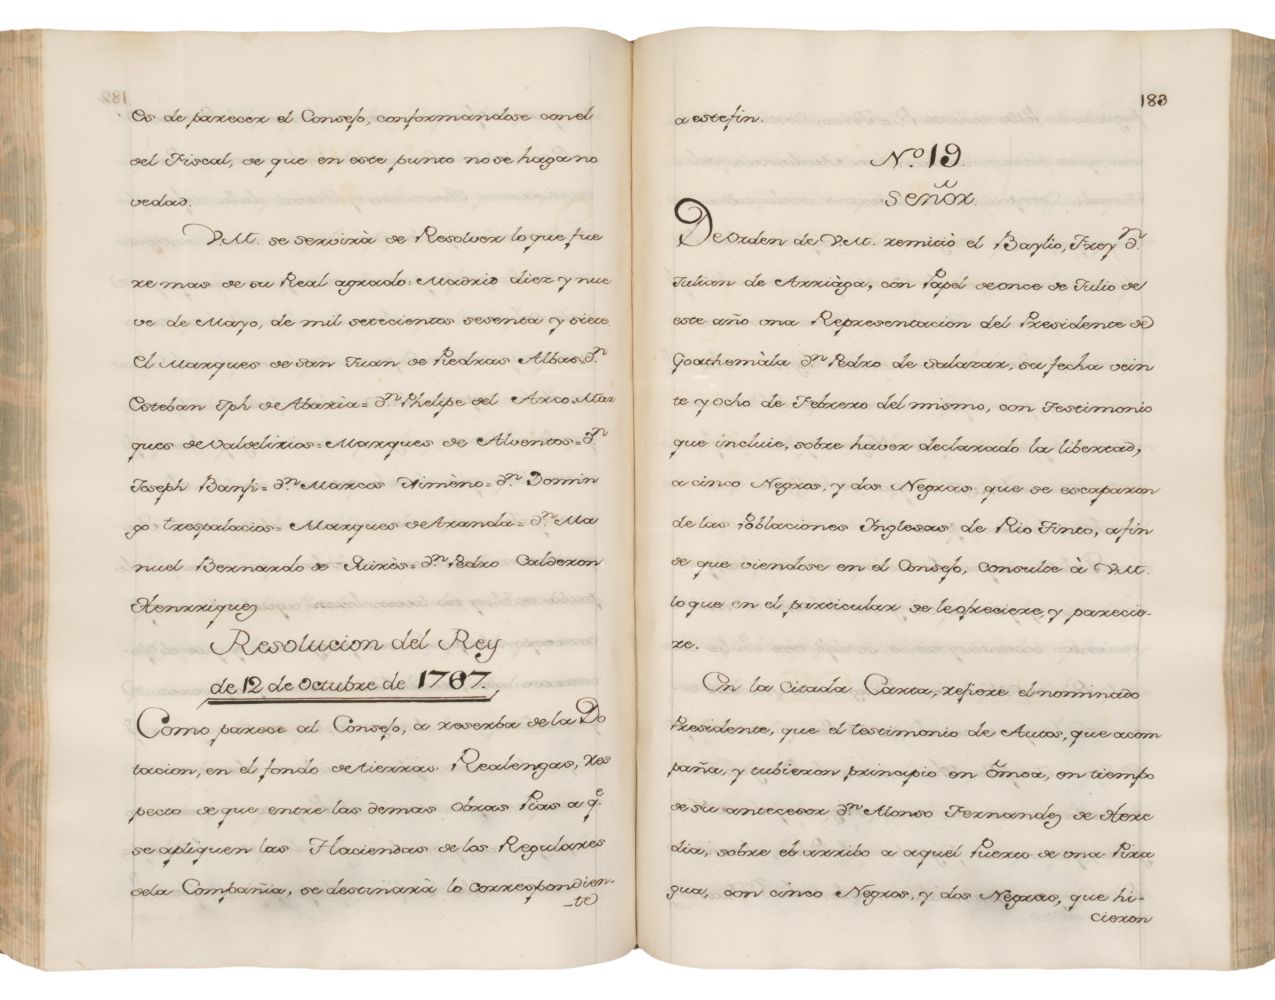 Es de parecer el Consejo, conformandose con el
del Fiscal, de que en este punto no se haga no
vedad.
V.M. se servirà de Resolver lo que fue
re mas de su Real agrado: Madrid diez y nue
ve de Mayo, de mil setecientos sesenta y siete
El Marques de San Juan de Piedras Albas= Dn.
Esteban Jph de Abaria= Dn. Phelipe del Arco= Mar
ques de Valdelirios= Marques de Alventos= Dn.
Joseph Banfi= Dn. Marcos Ximèno= Dn. Domin
go trespalacios= Marques de Aranda= Dn. Ma
nuel Bernardo de Quiròs= Dn. Pedro Calderon
Henrriquez
Resolucion del Rey
de 12 de Octubre de 1767.
Como parece al Consejo, a reserba de la Do
tacion, en el fondo de tierras Realengas, res
pecto de que entre las demas Obras Pias a qe.
se apliquen las Haciendas de los Regulares
de la Compañia, se destinarà lo correspondien-
-te
182
183
a este fin.
No. 19
Señor.
De Orden de V.M. remitiò el Baylio, Frey Dn.
Julian de Arriàga, con Papel de once de Julio de
este año una Representacion del Presidente de
Goathemàla Dn. Pedro de Salazar, su fecha vein
te y ocho de Febrero del mismo, con Testimonio
que incluie, sobre haver declarado la libertad,
a cinco Negros, y dos Negras que se escaparon
de las Poblaciones Inglesas de Rio Tinto, a fin
de que viendose en el Consejo, consulte à V.M.
lo que en el particular se le ofreciere, y parecie-
re.
En la citada Carta, refiere el nominado
Presidente, que el testimonio de Autos, que acom
paña, y tubieron principio en Omoa, en tiempo
de su antecesor Dn. Alonso Fernandez de Here
dia, sobre el arribo a aquel Puerto de una Pira
gua, con cinco Negros, y dos Negras, que hi-
cieron